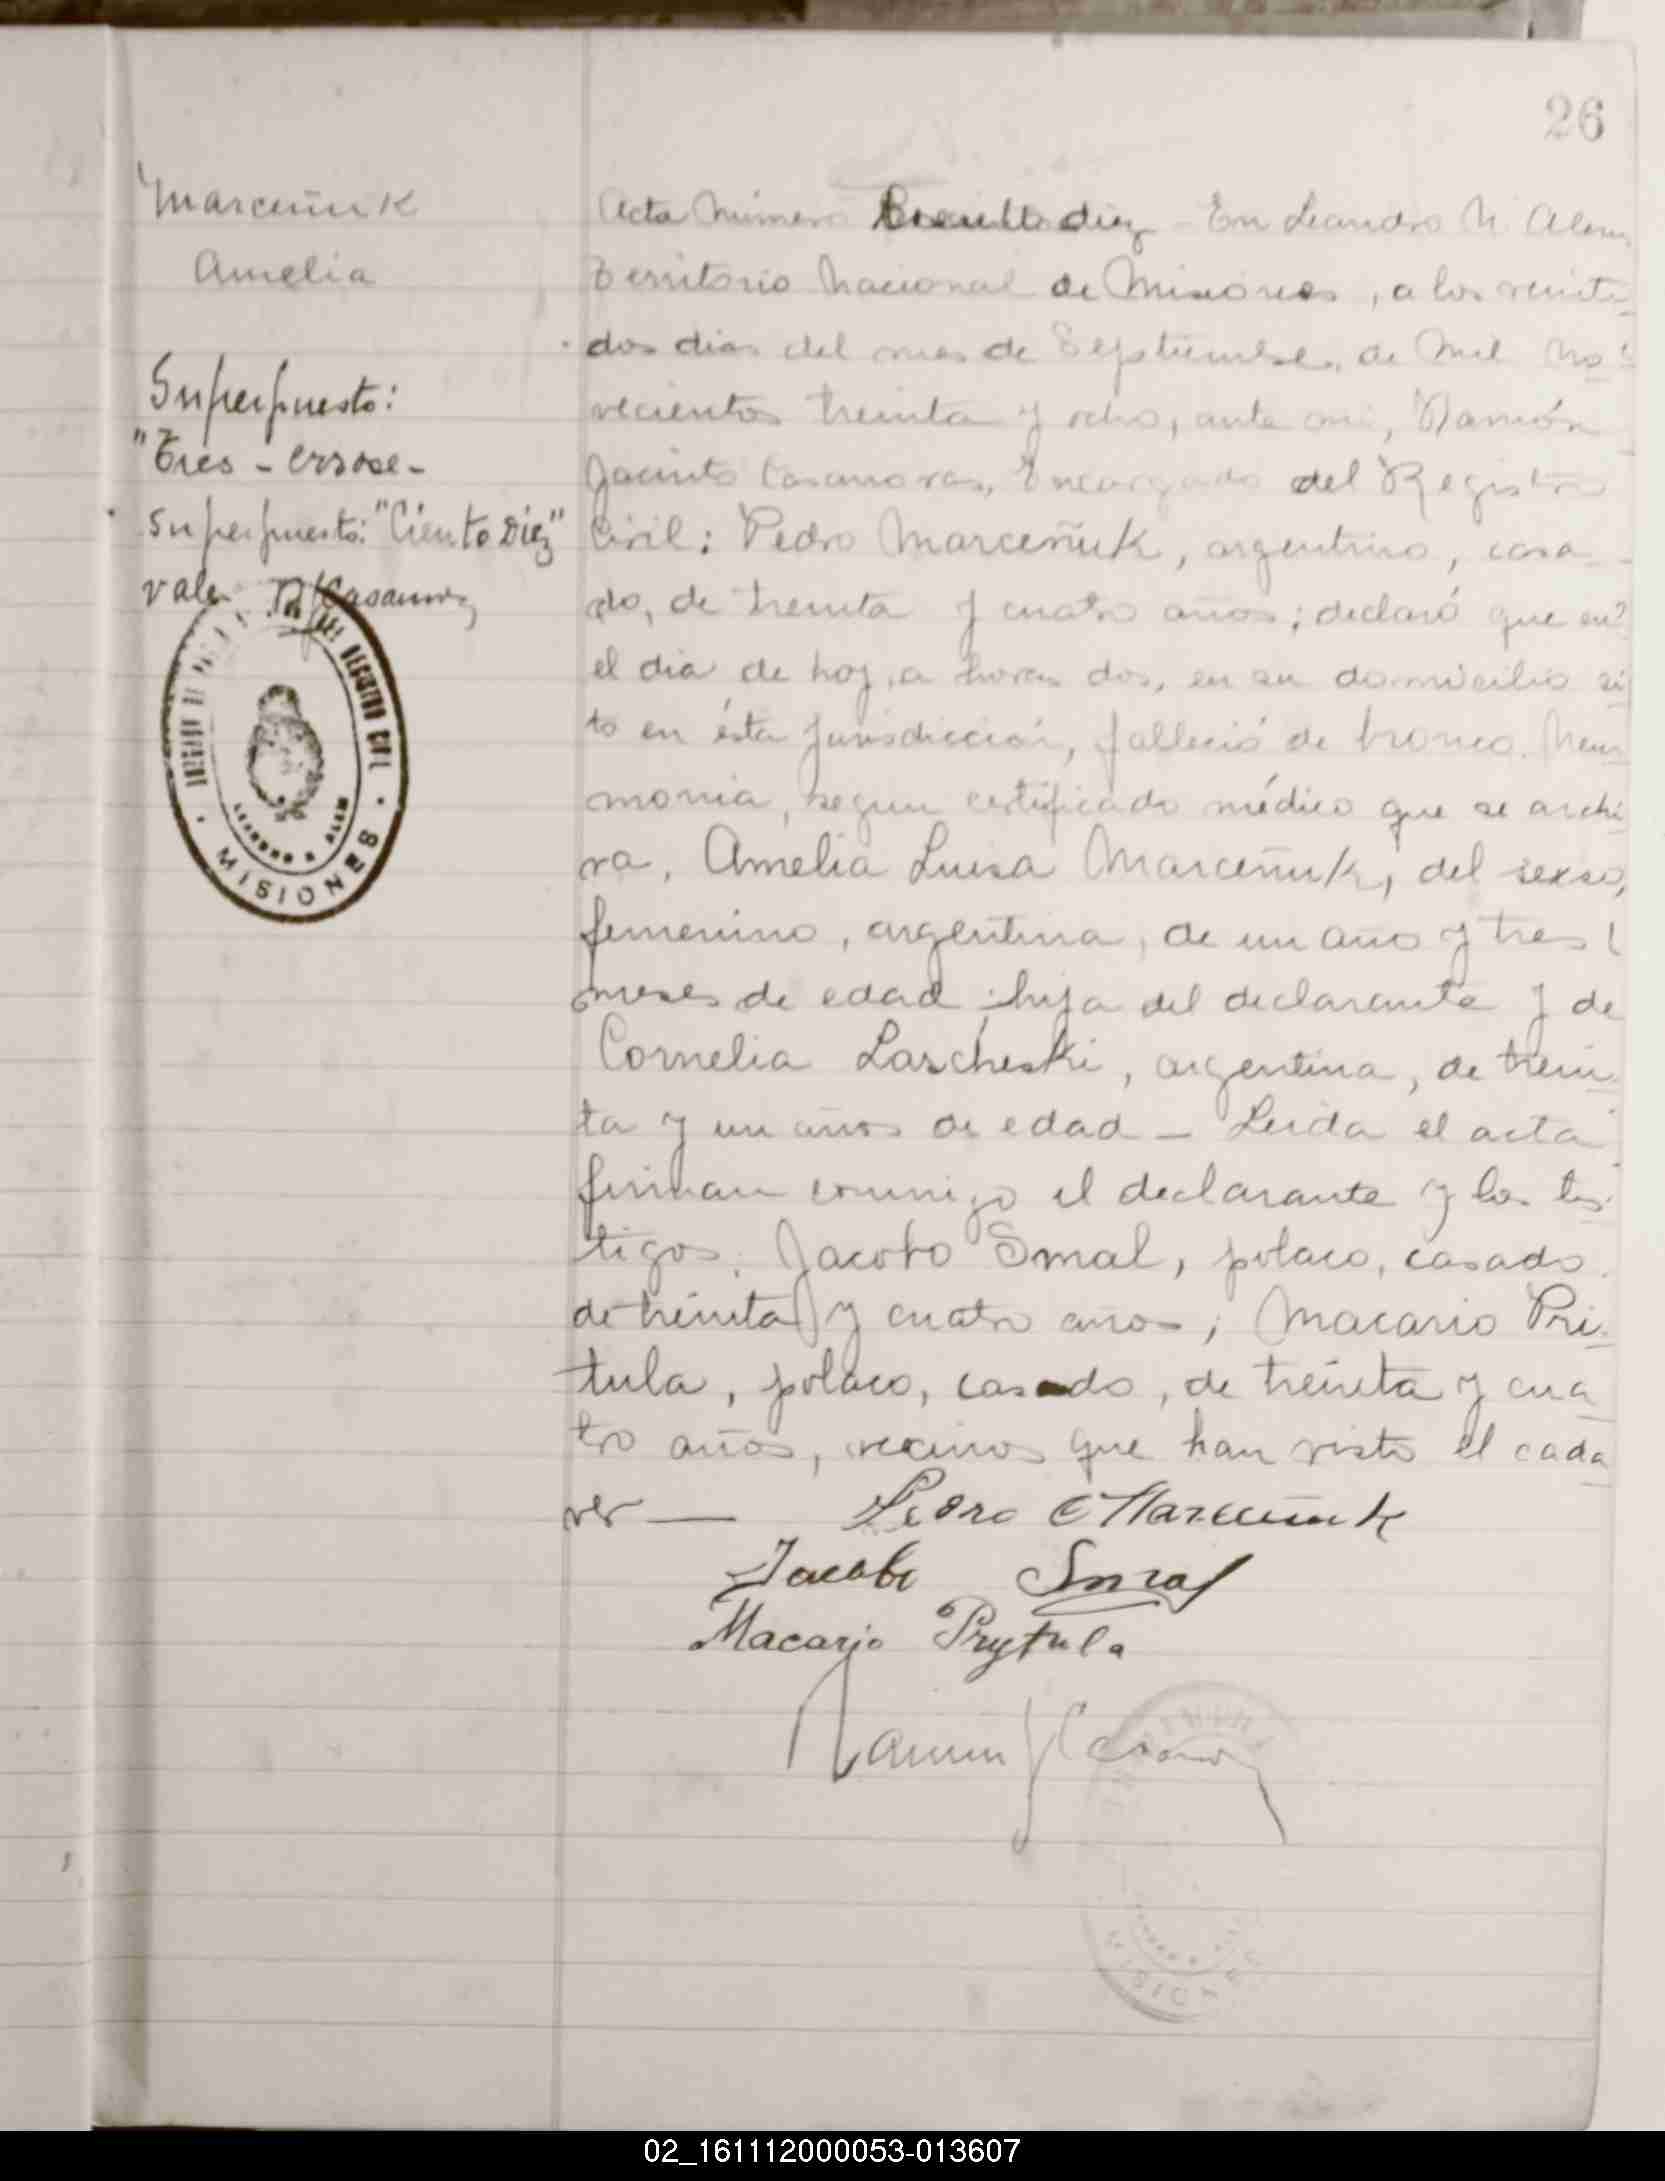 26
Marceñuk
Amelia
Superpuesto:
"Tres - errose -
superpuesto: "Ciento Diez"
vale R J Casanova
LEANDRO N ALEM
· MISIONES ·
Acta Número Ciento diez - En Leandro N. Alem
Territorio Nacional de Misiones, a los veinti
dos dias del mes de Septiembre, de Mil no
vecientos treinta y ocho, ante mi, Ramón
Jacinto Casanovas, Encargado del Registro
Civil: Pedro Marceñuk, argentino, casa
do, de treinta y cuatro años; declaró que en
el dia de hoy, a horas dos, en su domicilio si
to en ésta jurisdicción, falleció de bronco. Neu
monia, segun certificado médico que se archi
va, Amelia Luisa Marceñuk, del sexso,
femenino, argentina, de un año y tres
meses de edad; hija del declarante y de
Cornelia Lascheski, argentina, de trein
ta y un años de edad - Leida el acta
firman conmigo el declarante y los tes
tigos, Jacobo Smal, polaco, casado
de treinta y cuatro años; Macario Pri
tula, polaco, casado, de treinta y cua
tro años, vecinos que han visto el cada
ver — Pedro Marceñuk
Jacobo Smal
Macario Prytula
Ramon J Casanova
MISIONES
02_161112000053-013607